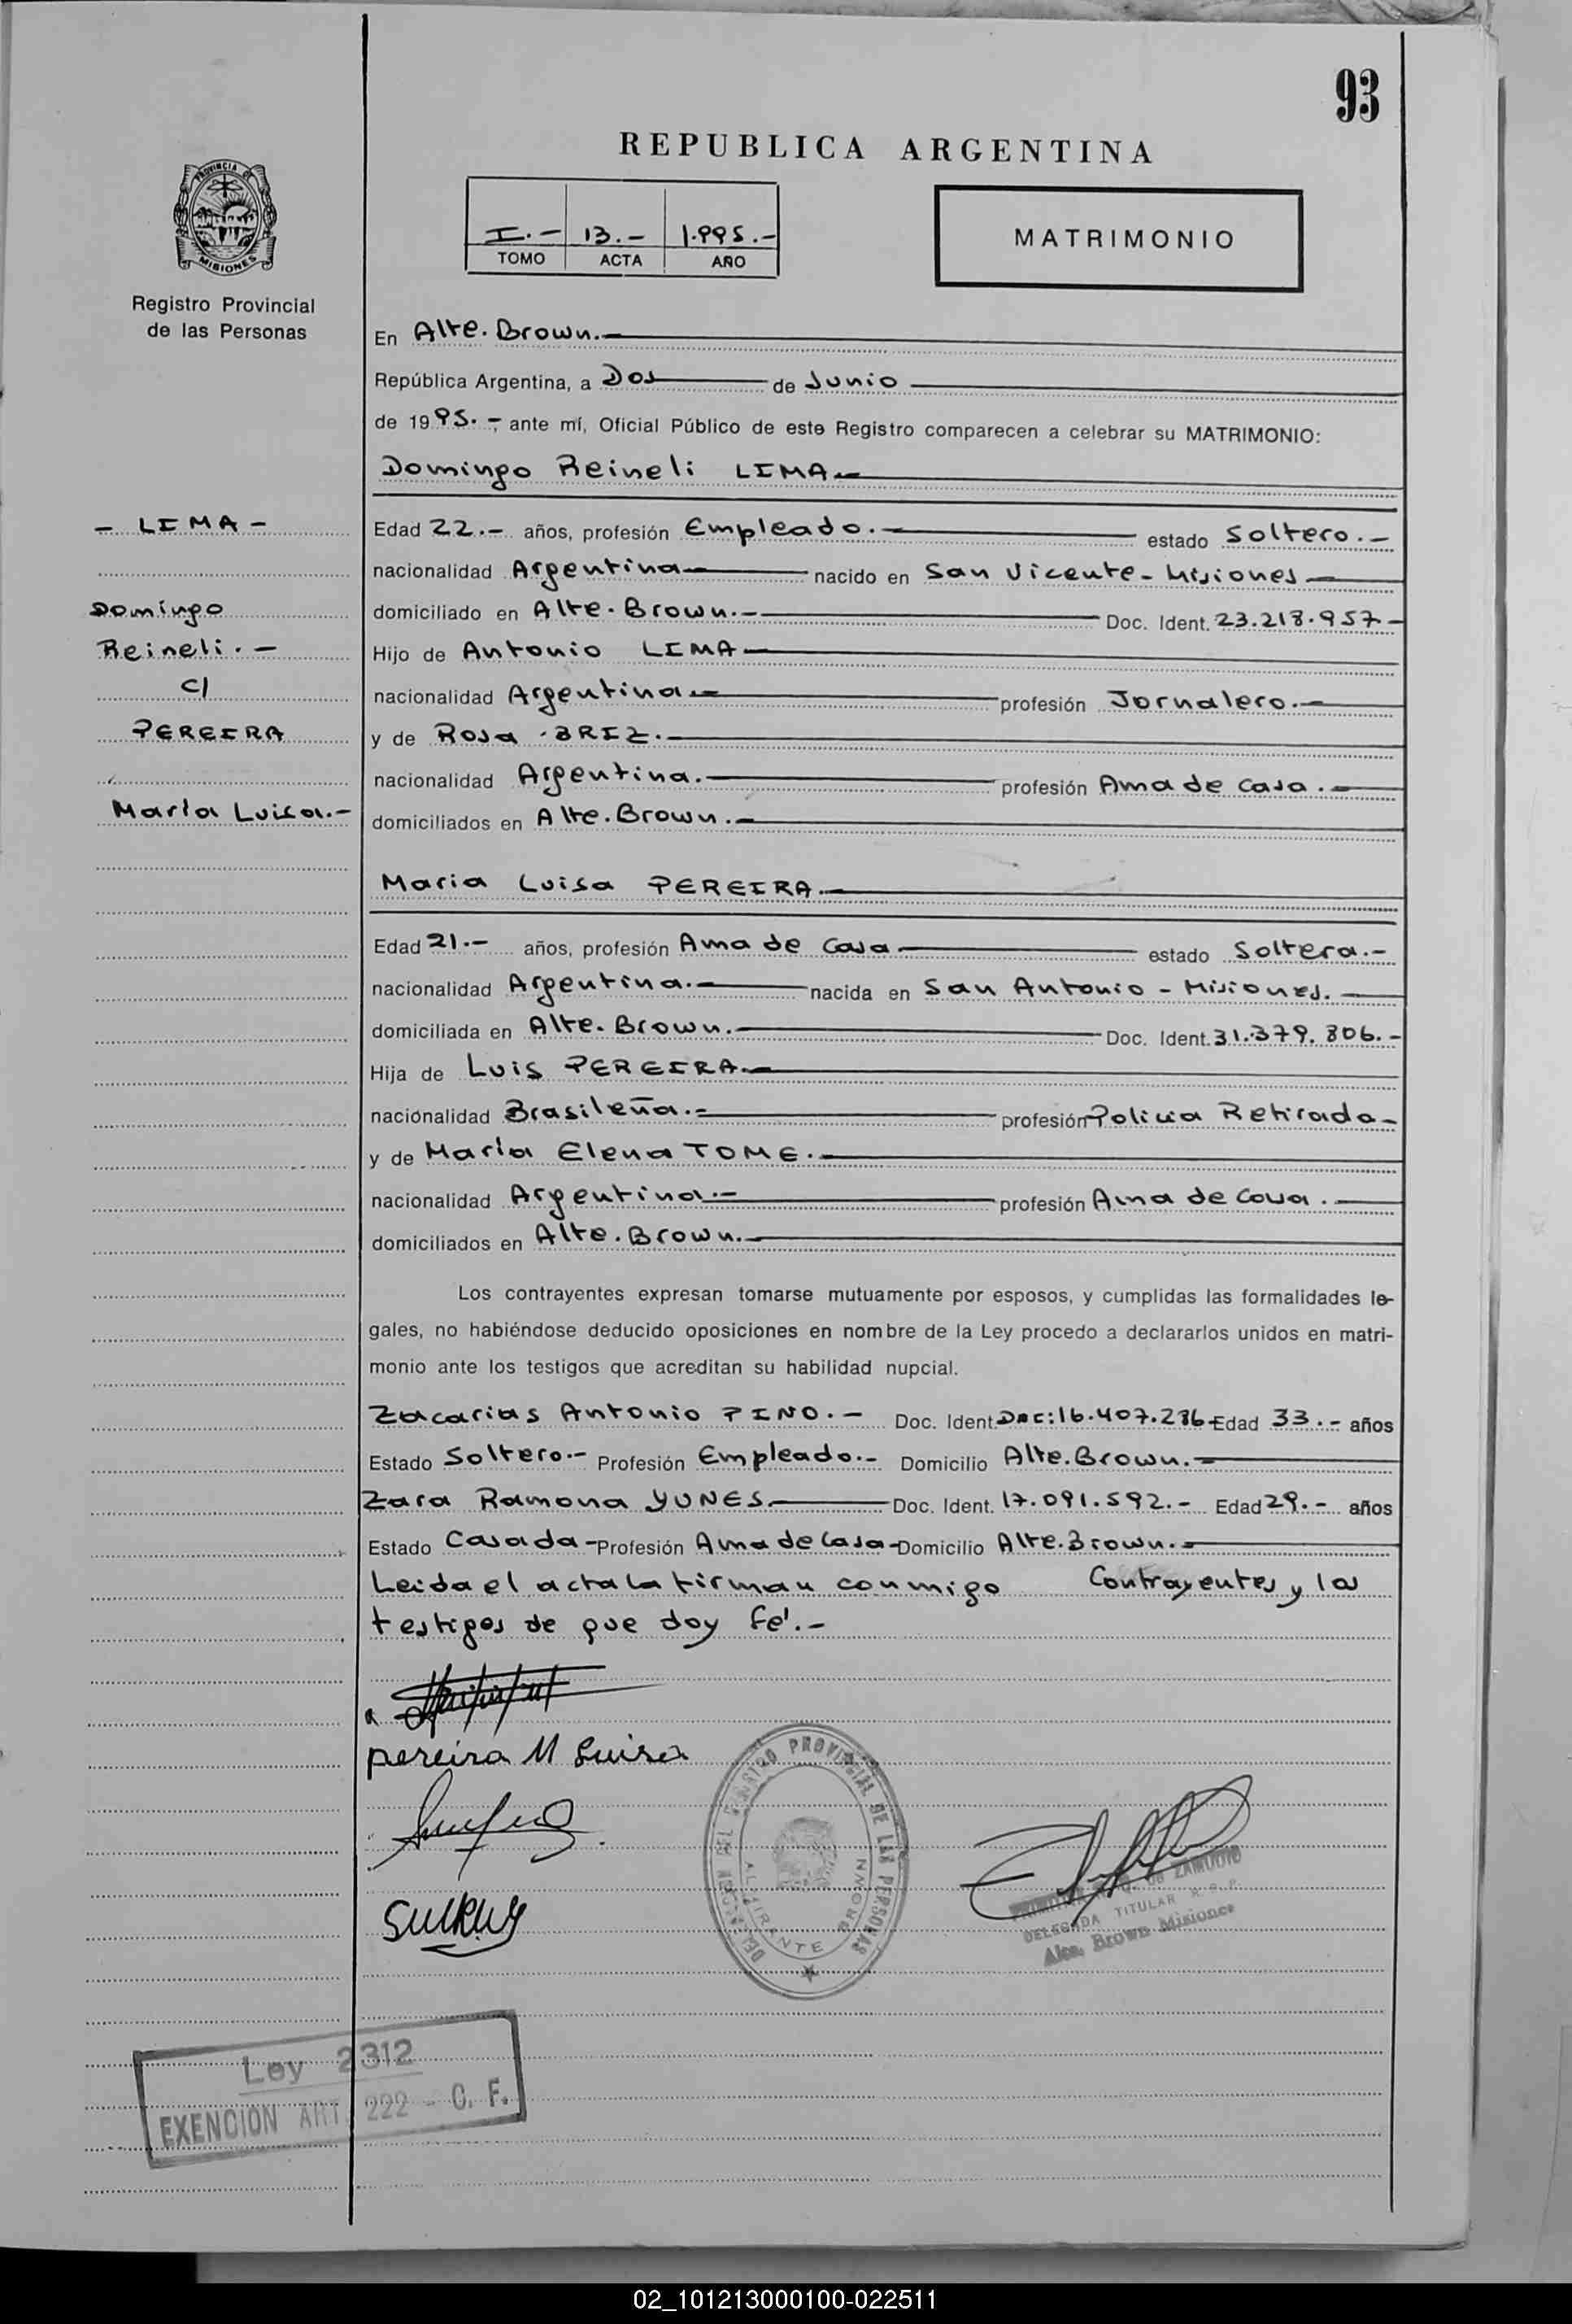 93
REPUBLICA ARGENTINA
I.- 13.- 1.995.-
TOMO ACTA AÑO
MATRIMONIO
PROVINCIA DE
MISIONES
Registro Provincial
de las Personas
En Alte. Brown.-
República Argentina, a Dos de Junio
de 1995.-, ante mí, Oficial Público de este Registro comparecen a celebrar su MATRIMONIO:
Domingo Reineli LIMA.-
- LIMA -
Domingo
Reineli.-
C/
PEREIRA
María Luisa.-
Edad 22.- años, profesión Empleado.- estado Soltero.-
nacionalidad Argentina nacido en San Vicente - Misiones
domiciliado en Alte. Brown.- Doc. Ident. 23.218.957-
Hijo de Antonio LIMA
nacionalidad Argentina.- profesión Jornalero.-
y de Rosa BRIZ.-
nacionalidad Argentina.- profesión Ama de Casa.-
domiciliados en Alte. Brown.-
Maria Luisa PEREIRA.-
Edad 21.- años, profesión Ama de Casa estado Soltera.-
nacionalidad Argentina.- nacida en San Antonio - Misiones.-
domiciliada en Alte. Brown.- Doc. Ident. 31.379.806.-
Hija de Luis PEREIRA.-
nacionalidad Brasileña.- profesión Policia Retirado-
y de María Elena TOME.-
nacionalidad Argentina.- profesión Ama de Casa.-
domiciliados en Alte. Brown.-
Los contrayentes expresan tomarse mutuamente por esposos, y cumplidas las formalidades le-
gales, no habiéndose deducido oposiciones en nombre de la Ley procedo a declararlos unidos en matri-
monio ante los testigos que acreditan su habilidad nupcial.
Zacarias Antonio PINO.- Doc. Ident. 16.407.286- Edad 33.- años
Estado Soltero.- Profesión Empleado.- Domicilio Alte. Brown.-
Zara Ramona YUNES Doc. Ident. 17.091.592.- Edad 29.- años
Estado Casada- Profesión Ama de Casa- Domicilio Alte. Brown.-
Leida el acta la firman conmigo Contrayentes y los
testigos de que doy fe'.-
pereira M Luisa
DEL REGISTRO PROVINCIAL DE LAS PERSONAS
ALMIRANTE BROWN
DE ZAMUDIO
DELEGADA TITULAR R.P.P.
Alte. Brown Misiones
Ley 2312
EXENCION ART. 222 - C. F.
02_101213000100-022511